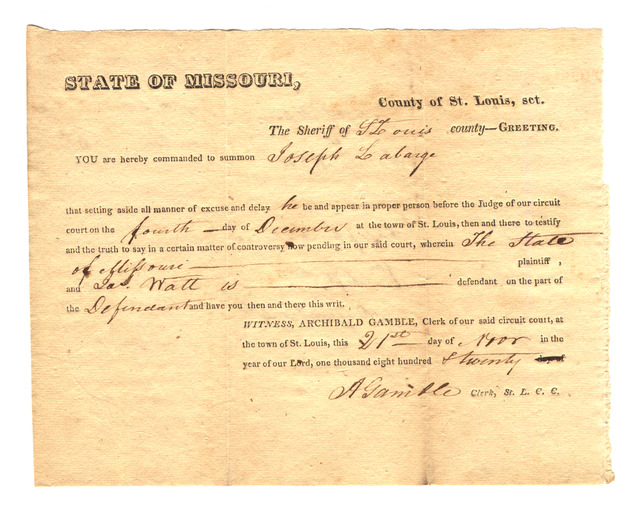 STATE OF MISSOURI,
County of St. Louis, sct.
The Sheriff of St Louis county—GREETING.
YOU are hereby commanded to summon Joseph Labarge
that setting aside all manner of excuse and delay he be and appear in proper person before the Judge of our circuit
court on the fourth day of December at the town of St. Louis, then and there to testify
and the truth to say in a certain matter of controversy now pending in our said court, wherein The State
of Missouri plaintiff,
and Jas. Watt is defendant on the part of
the Defendant and have you then and there this writ.
WITNESS, ARCHIBALD GAMBLE, Clerk of our said circuit court, at
the town of St. Louis, this 21st day of Novr in the
year of our Lord, one thousand eight hundred & twenty day of
A Gamble Clerk, St. L. C. C.